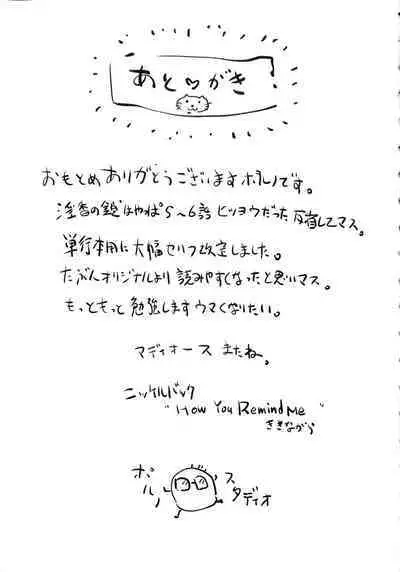 あと♡がき!
おもとめありがとうございますポルノです。
淫香の鏡はやっぱ5〜6話ヒツヨウだった反省してマス。
単行本用に大幅セリフ改定しました。
たぶんオリジナルより読みやすくなったと思いマス。
もっともっと勉強しますウマくなりたい。
マディオース またね。
ニッケルバック
"How You Remind Me"
ききながら
ポルノ
スタディオ